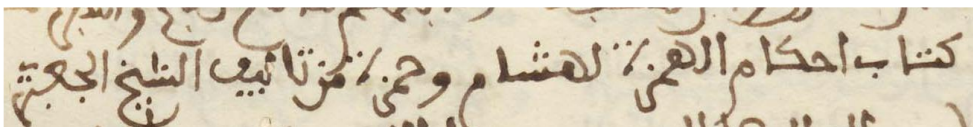 كتاب احكام الهمزة لهشام وحمزة من تاليف الشيخ الجعبري